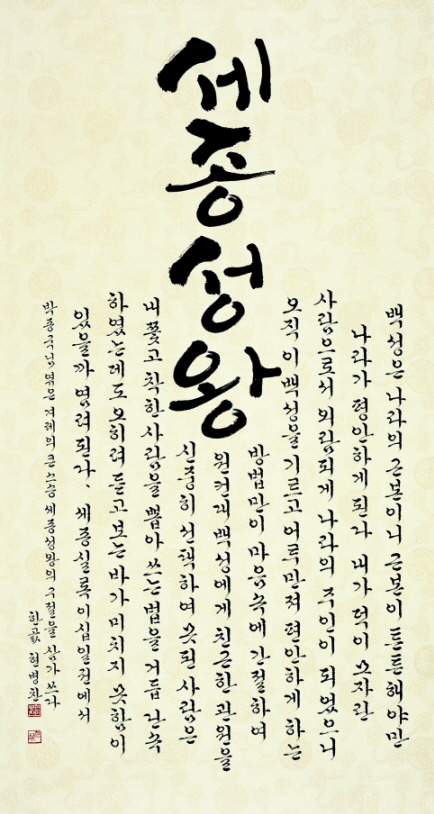 세종성왕
백성은 나라의 근본이니 근본이 튼튼해야만
나라가 평안하게 된다 내가 덕이 모자란
사람으로서 외람되게 나라의 주인이 되었으니
오직 이 백성을 기르고 어루만져 편안하게 하는
방법만이 마음속에 간절하여
원컨대 백성에게 친근한 관원을
신중히 선택하여 못된 사람은
내쫓고 착한 사람을 뽑아 쓰는 법을 거듭 단속
하였는데도 오히려 듣고 보는 바가 미치지 못함이
있을까 염려된다. 세종실록 이십일권에서
박종국님 엮은 겨레의 큰 스승 세종성왕의 구절을 삼가 쓰다
한곬 현병찬